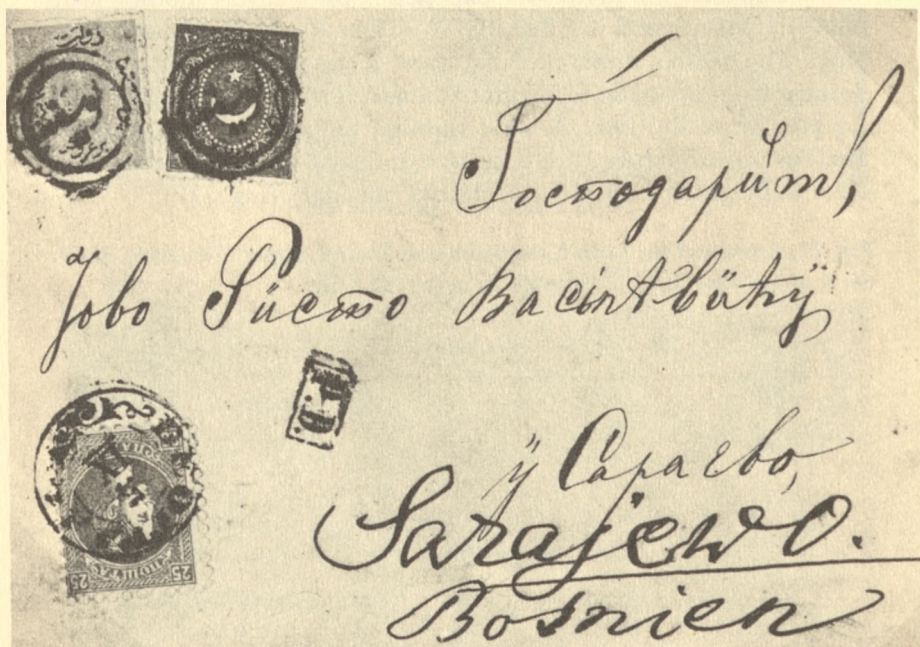 Господарит,
Јово Ристо Васиљевићу
у Сараево,
Sarajewo.
Bosnien
ПОШТА
25 25